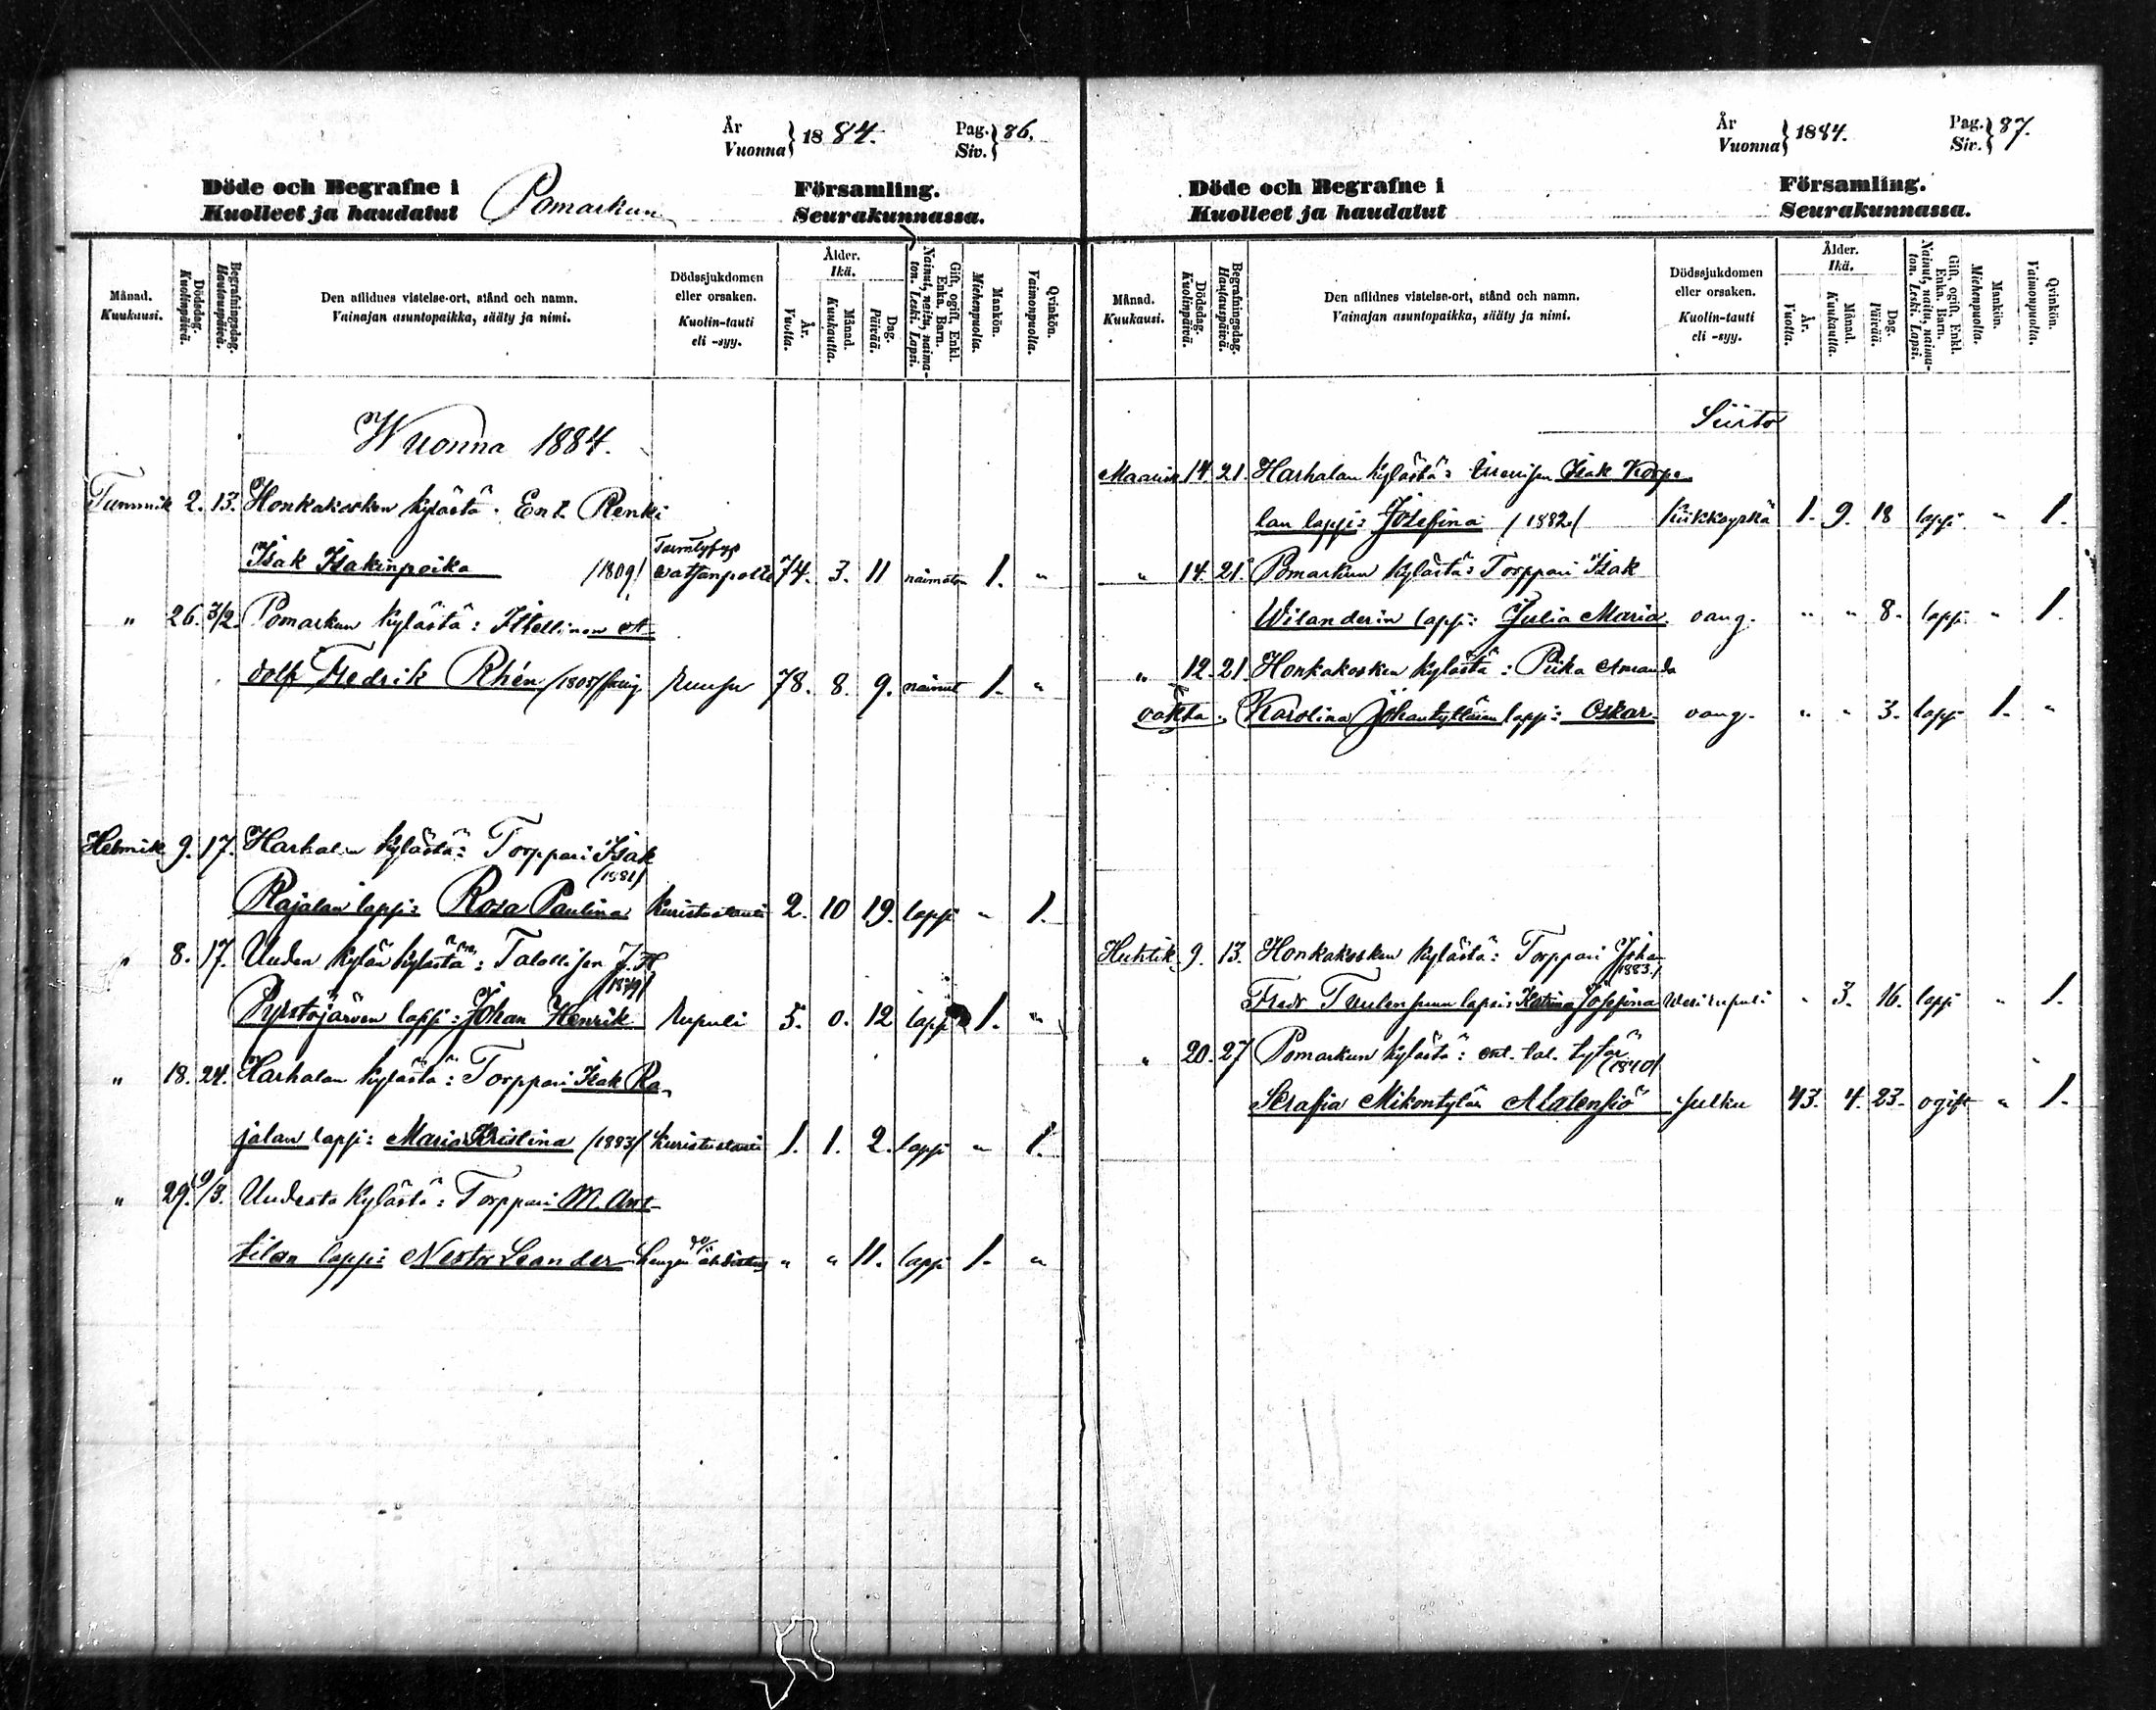 År Vuonna } 1884. Pag. Siv. } 86.
Döde och Begrafne i Pomarkun Församling.
Kuolleet ja haudatut Seurakunnassa.
Månad. Kuukausi. Dödsdag. Kuolinpäivä. Begrafningsdag. Hautauspäivä. Den aflidnes vistelse-ort, stånd och namn. Vainajan asuntopaikka, sääty ja nimi. Dödssjukdomen eller orsaken. Kuolin-tauti eli -syy. Ålder. Ikä. År. Vuotta. Månad. Kuukautta. Dag. Päivää. Gift, ogift, Enkl. Enka. Barn. Nainut, naitu, naimaton. Leski. Lapsi. Mankön. Miehenpuolia. Qvinkön. Vaimonpuolia.
Wuonna 1884.
Tammik 2. 13. Honkakosken kylästä. Ent. Renki
Isak Isakinpoika /1809/ 74. 3. 11 naimaton 1. "
" 26. 3/2. Pomarkun kylästä: Itsellinen A-
dolf Fredrik Rhén /1805/ 78. 8. 9. nainut 1. "
Helmik 9. 17. Harhalan kylästä: Torppari Isak
/1881/
Rajalan lapsi: Rosa Paulina Kuristustauti 2. 10 19. lapsi " 1.
" 8. 17. Uuden kylän kylästä: Talollisen J. H.
/1879/
Pyistöjärven lapsi: Johan Henrik rupuli 5. 0. 12 lapsi 1. "
" 18. 24. Harhalan kylästä: Torppari Isak Ra-
jalan lapsi: Maria Kristina /1883/ Kuristustauti 1. 1. 2. lapsi " 1.
" 29. 9/3. Uudesta kylästä: Torppari M. Ant-
tilan lapsi: Nestor Leander hengen ahdistus " " 11. lapsi 1. "
År Vuonna } 1884. Pag. Siv. } 87.
Döde och Begrafne i Församling.
Kuolleet ja haudatut Seurakunnassa.
Månad. Kuukausi. Dödsdag. Kuolinpäivä. Begrafningsdag. Hautauspäivä. Den aflidnes vistelse-ort, stånd och namn. Vainajan asuntopaikka, sääty ja nimi. Dödssjukdomen eller orsaken. Kuolin-tauti eli -syy. Ålder. Ikä. År. Vuotta. Månad. Kuukautta. Dag. Päivää. Gift, ogift, Enkl. Enka. Barn. Nainut, naitu, naimaton. Leski. Lapsi. Mankön. Miehenpuolia. Qvinkön. Vaimonpuolia.
Siirto
Maalisk 14. 21. Harhalan kylästä: Isak Korpe-
lan lapsi: Josefina /1882/ 1. 9. 18 lapsi " 1.
" 14. 21. Pomarkun kylästä: Torppari Isak
Wilanderin lapsi: Julia Maria. " " 8. lapsi " 1.
" 12. 21. Honkakosken kylästä: Piika Amanda
Karolina Johantyttären lapsi: Oskar. " " 3. lapsi 1. "
Huhtik. 9. 13. Honkakosken kylästä: Torppari Johan
/1883./
Fredr Tuulensuun lapsi: Katrina Josefina Werirupuli " 3. 16. lapsi " 1.
" 20. 27 Pomarkun kylästä: ent. tal. tytär
/1840/
Serafia Mikontytär Alatensiö 43. 4. 23. ogift " 1.